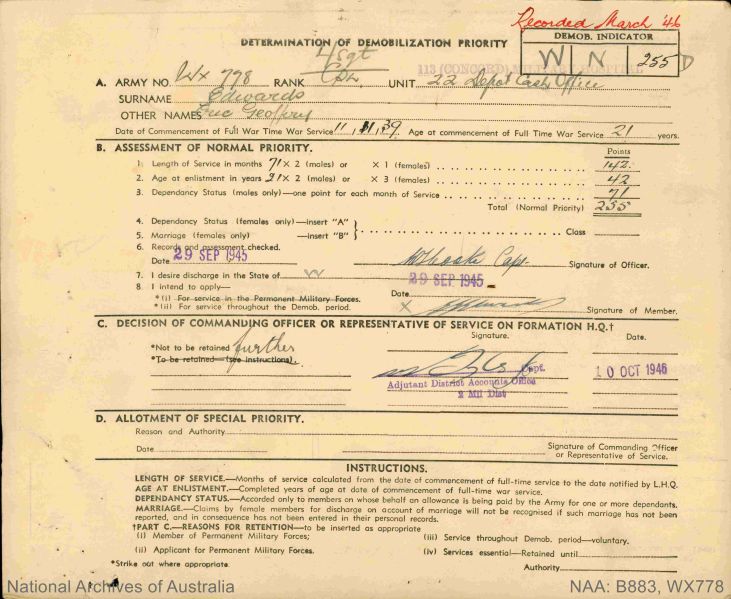 Recorded March '46
DEMOB. INDICATOR
W N 255 D
DETERMINATION OF DEMOBILIZATION PRIORITY
113 (CONCORD) MILITARY HOSPITAL
A/Sgt
A. ARMY NO. Wx 778 RANK Cpl. UNIT 22 Depot Cash Office
SURNAME Edwards
OTHER NAMES Eric Geoffrey
Date of Commencement of Full War Time War Service 11.11.39 Age at commencement of Full Time War Service 21 years.
B. ASSESSMENT OF NORMAL PRIORITY. Points
1. Length of Service in months 71 × 2 (males) or × 1 (females) 142
2. Age at enlistment in years 21 × 2 (males) or × 3 (females) 42
3. Dependancy Status (males only)—one point for each month of Service 71
Total (Normal Priority) 255
4. Dependancy Status (females only)—insert "A"
5. Marriage (females only) —insert "B" Class
6. Records and assessment checked.
Date 29 SEP 1945 Capt Signature of Officer.
7. I desire discharge in the State of W 29 SEP 1945
8. I intend to apply— Date
*(i) For service in the Permanent Military Forces.
*(ii) For service throughout the Demob. period. X Signature of Member.
C. DECISION OF COMMANDING OFFICER OR REPRESENTATIVE OF SERVICE ON FORMATION H.Q.†
Signature. Date.
*Not to be retained further
*To be retained—(see instructions).
Capt. 10 OCT 1945
Adjutant District Accounts Office
2 Mil Dist
D. ALLOTMENT OF SPECIAL PRIORITY.
Reason and Authority
Date Signature of Commanding Officer
or Representative of Service.
INSTRUCTIONS.
LENGTH OF SERVICE.—Months of service calculated from the date of commencement of full-time service to the date notified by L.H.Q.
AGE AT ENLISTMENT.—Completed years of age at date of commencement of full-time war service.
DEPENDANCY STATUS.—Accorded only to members on whose behalf an allowance is being paid by the Army for one or more dependants.
MARRIAGE.—Claims by female members for discharge on account of marriage will not be recognised if such marriage has not been
reported, and in consequence has not been entered in their personal records.
†PART C.—REASONS FOR RETENTION—to be inserted as appropriate
(i) Member of Permanent Military Forces; (iii) Service throughout Demob. period—voluntary.
(ii) Applicant for Permanent Military Forces. (iv) Services essential—Retained until
*Strike out where appropriate. Authority
National Archives of Australia NAA: B883, WX778